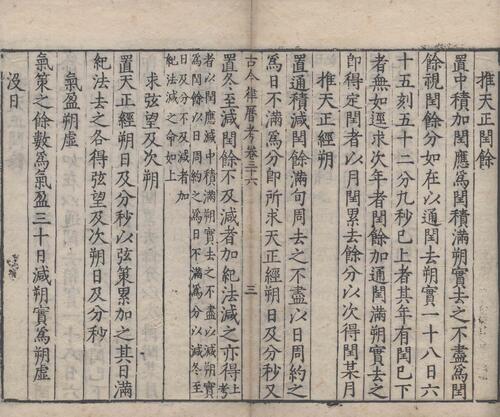 推天正閏餘
置中積加閏應爲閏積滿朔實去之不盡爲閏
餘視閏餘分如在以通閏去朔實一十八日六
十五刻五十二分九秒已上者其年有閏已下
者無如逕求次年者閏餘加通閏滿朔實去之
即得定閏者以月閏累去餘分以次得閏某月
推天正經朔
置通積減閏餘滿旬周去之不盡以日周約之
爲日不滿爲分即所求天正經朔日及分秒又
古今律曆考 卷三十六 三
置冬至減閏餘不及減者加紀法減之亦得上考
者以閏應減中積滿朔實去之不盡減朔實
爲閏餘以日周約之爲日不滿爲分以減冬至
日及分不及減者加
紀法減之命如上
求弦望及次朔
置天正經朔日及分秒以弦策累加之其日滿
紀法去之各得弦望及次朔日及分秒
氣盈朔虛
氣策之餘數爲氣盈三十日減朔實爲朔虛
沒日